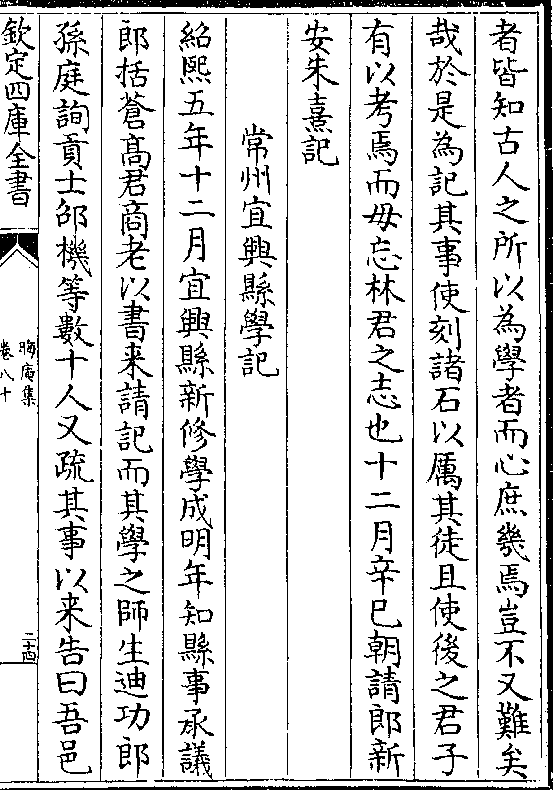 者皆知古人之所以為學者而心庶幾焉豈不又難矣
哉於是為記其事使刻諸石以厲其徒且使後之君子
有以考焉而毋忘林君之志也十二月辛巳朝請郎新
安朱熹記
常州宜興縣學記
紹熙五年十二月宜興縣新修學成明年知縣事承議
郎括蒼髙君商老以書来請記而其學之師生迪功郎
孫庭詢貢士邵機等數十人又疏其事以来告曰吾邑
欽定四庫全書
晦庵集
卷八十
二十四